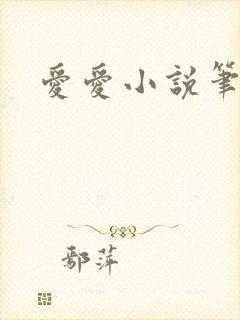 愛愛小說筆
鄢萍